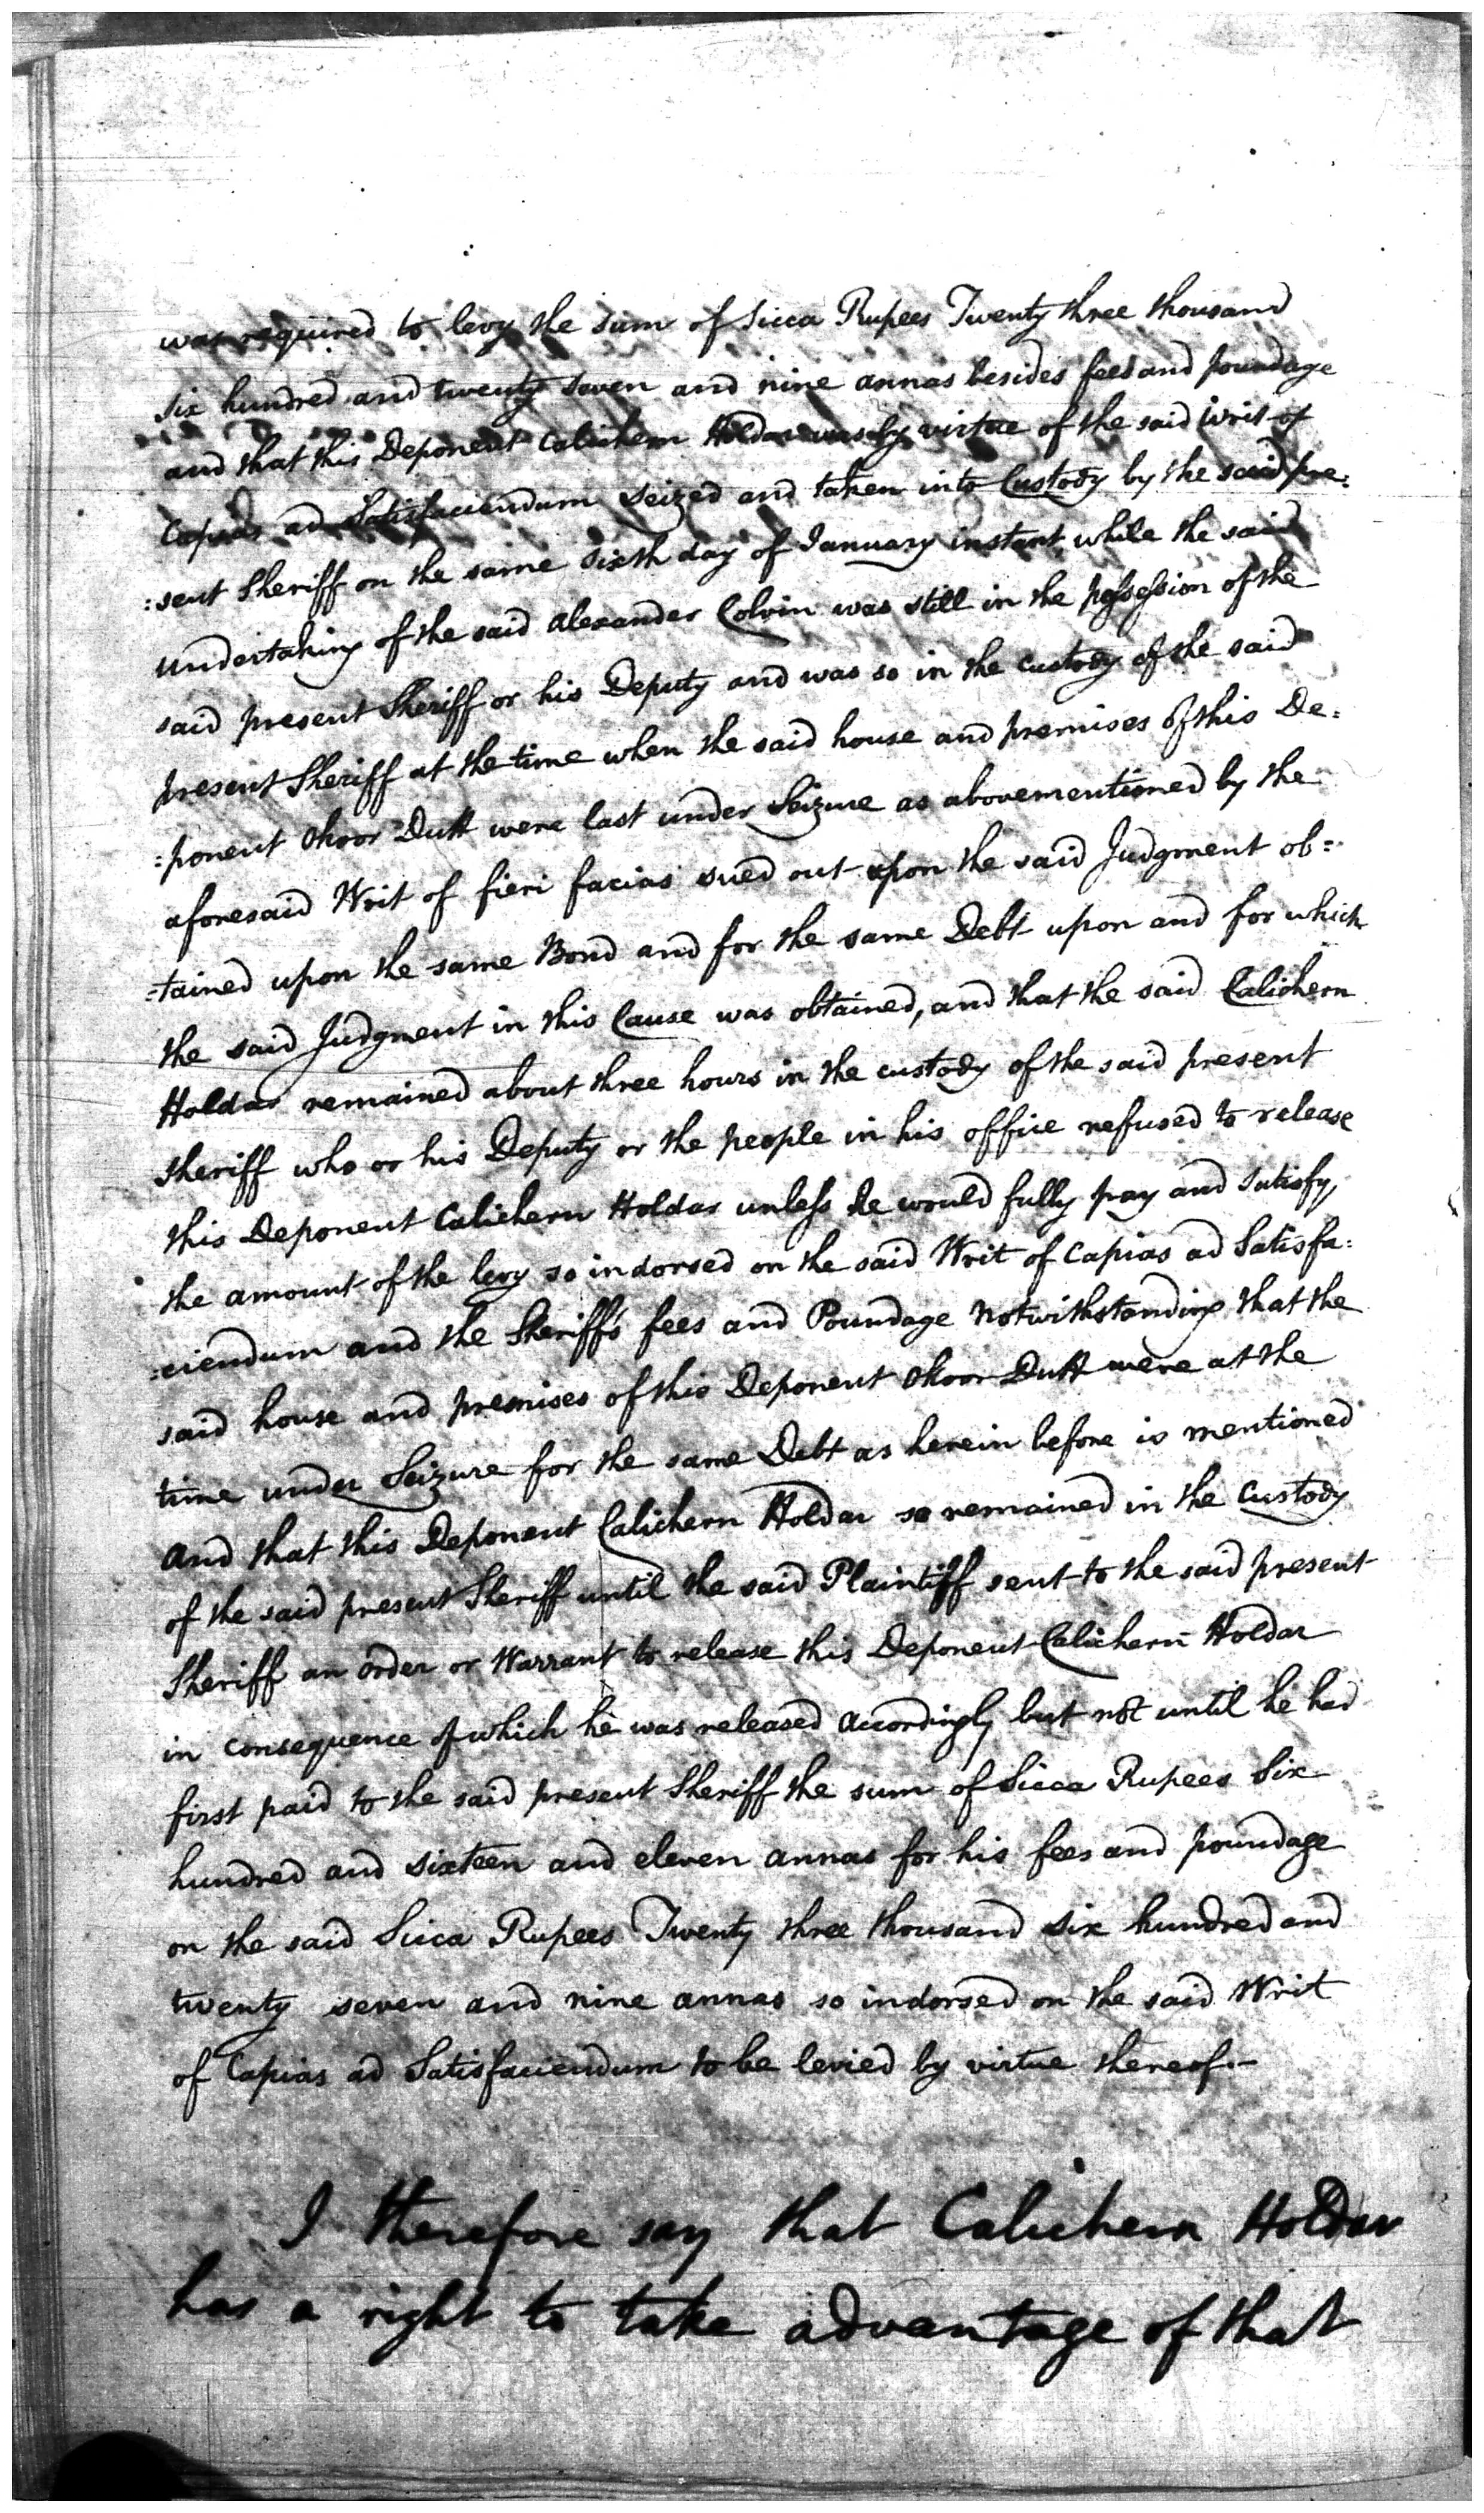 was required to levy the sum of Sicca Rupees Twenty three thousand
six hundred and twenty seven and nine annas besides fees and poundage
and that this Deponent Calichern Holdar was by virtue of the said Writ of
Capias ad Satisfaciendum seized and taken into Custody by the said pre=
:sent Sheriff on the same sixth day of January instant while the said
undertaking of the said Alexander Colvin was still in the possession of the
said present Sheriff or his Deputy and was so in the custody of the said
present Sheriff at the time when the said house and premises of this De=
=ponent Okoor Dutt were last under Seizure as abovementioned by the
aforesaid Writ of fieri facias sued out upon the said Judgment ob=
=tained upon the same Bond and for the same Debt upon and for which
the said Judgment in this Cause was obtained, and that the said Calichern
Holdar remained about three hours in the custody of the said present
Sheriff who or his Deputy or the people in his office refused to release
this Deponent Calichern Holdar unless he would fully pay and satisfy
the amount of the levy so indorsed on the said Writ of Capias ad Satisfa=
=ciendum and the Sheriff's fees and Poundage notwithstanding that the
said house and premises of this Deponent Okoor Dutt were at the
time under Seizure for the same Debt as herein before is mentioned
and that this Deponent Calichern Holdar so remained in the custody
of the said present Sheriff until the said Plaintiff sent to the said present
Sheriff an order or Warrant to release this Deponent Calichern Holdar
in consequence of which he was released accordingly but not until he had
first paid to the said present Sheriff the sum of Sicca Rupees Six
hundred and sixteen and eleven annas for his fees and poundage
on the said Sicca Rupees Twenty three thousand six hundred and
twenty seven and nine annas so indorsed on the said Writ
of Capias ad Satisfaciendum to be levied by virtue thereof.—
I therefore say that Calichern Holdar
has a right to take advantage of that